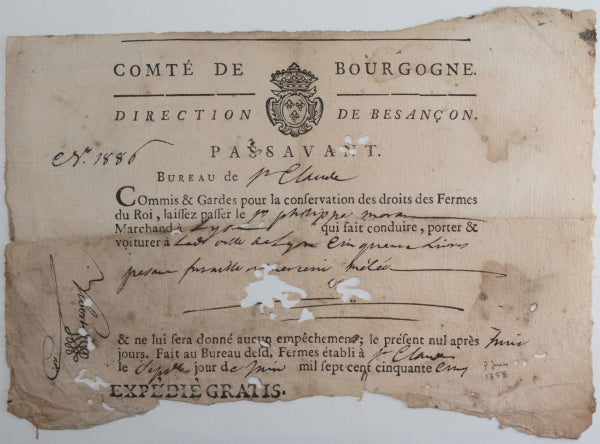 COMTÉ DE BOURGOGNE.
DIRECTION DE BESANÇON.
PASSAVANT.
N.o 1886
BUREAU de St Claude
Commis & Gardes pour la conservation des droits des Fermes
du Roi, laissez passer le Sr philippe
Marchand à Lyon qui fait conduire, porter &
voiturer à lad ville de Lyon Cinquante Livres
pesant mêlée
& ne lui sera donné aucun empêchement; le présent nul après
jours. Fait au Bureau desd. Fermes établi à St Claude
le Sept jour de Juin mil sept cent cinquante
7 Juin
1755
EXPÉDIÉ GRATIS.